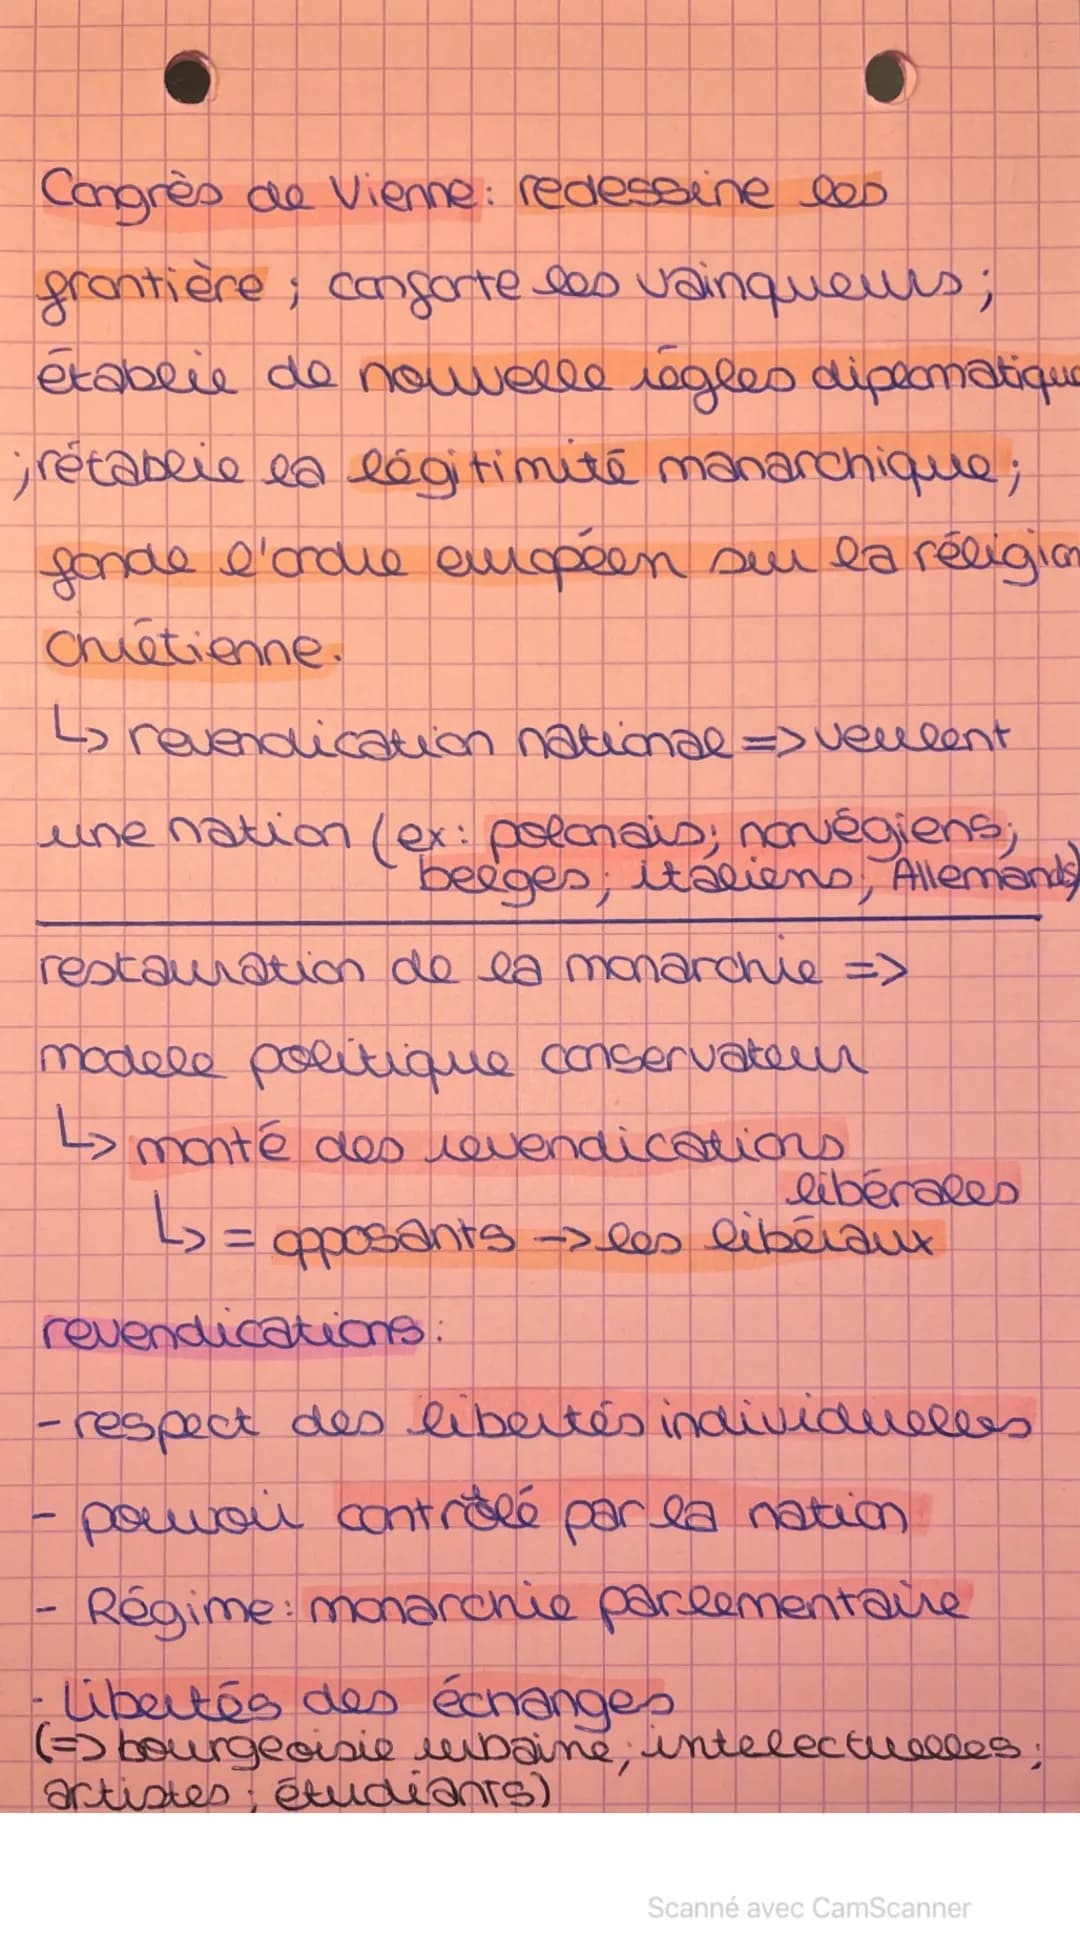 Congrès de Vienne: redessine les
frontière ; conforte les vainqueurs ;
établie de nouvelle règles diplomatique
; rétablie la légitimité monarchique ;
fonde l'ordre européen sur la réligion
Chrétienne.
↳ revendication national => veulent
une nation (ex: polonais; norvégiens;
belges; italiens; Allemands)
restauration de la monarchie =>
modele politique conservateur
↳ monté des revendications
libérales
↳ = opposants -> les libéraux
revendications:
- respect des libertés individuelles
- pouvoir contrôlé par la nation
- Régime: monarchie parlementaire
- Libertés des échanges
(=> bourgeoisie urbaine; intelectuelles;
artistes; étudiants)
Scanné avec CamScanner